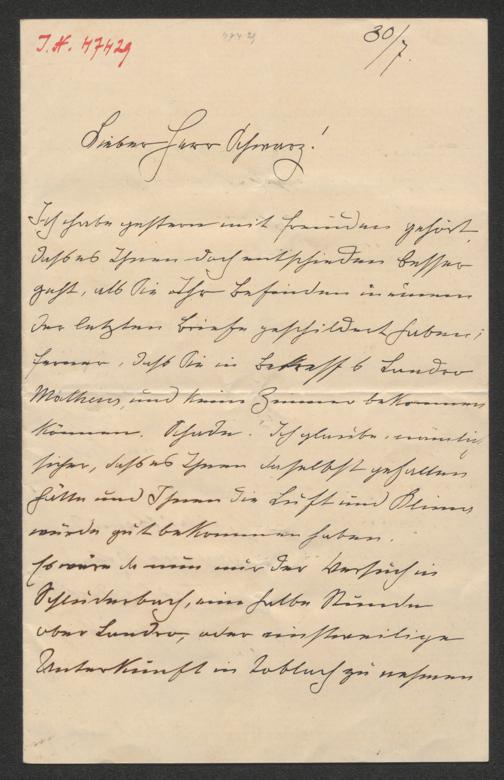 I.N. 47429
47429
30/7.
Lieber Herr Schwarz!
Ich habe gestern mit Freuden gehört,
daß es Ihnen doch entschieden besser
geht, als Sie Ihr Befinden in einem
der letzten Briefe geschildert haben;
ferner, daß Sie in Betreff Landro
und keine Zimmer bekommen
können. Schade. Ich glaube, nämlich
sicher, daß es Ihnen daselbst gefallen
hätte und Ihnen die Luft und Klima
würde gut bekommen haben.
Es wäre da nun nur der Versuch in
Schluderbach, eine halbe Stunde
ober Landro, oder einstweilige
Unterkunft in Toblach zu nehmen